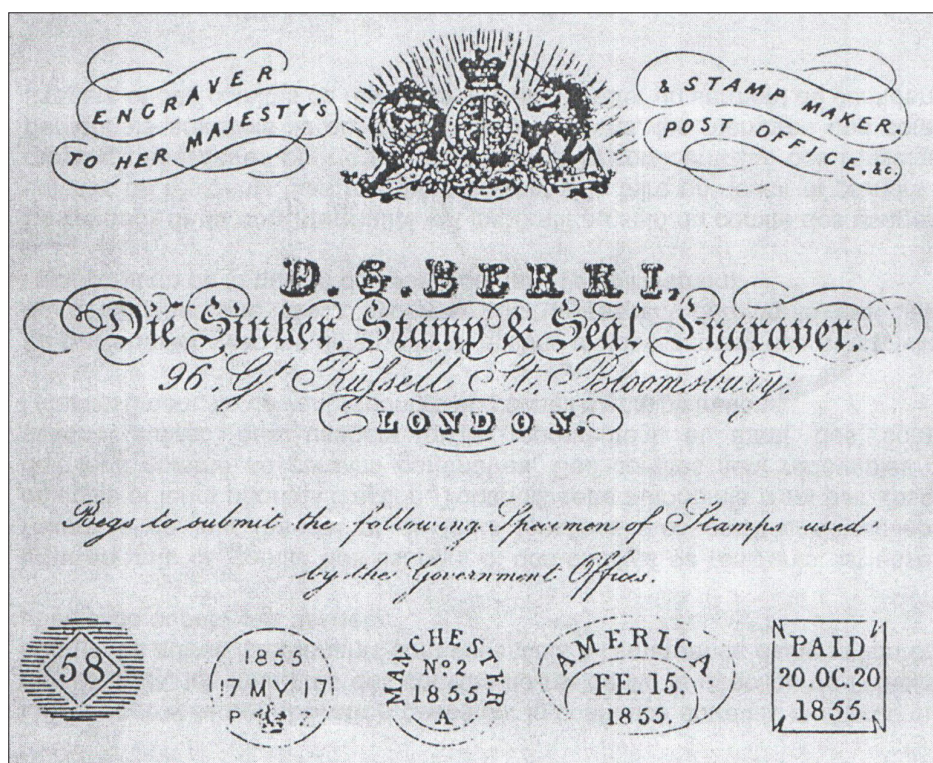 ENGRAVER
TO HER MAJESTY'S
& STAMP MAKER
POST OFFICE, &c.
D. G. BERRI,
Die Sinker, Stamp & Seal Engraver.
96, Gt Russell St. Bloomsbury
LONDON.
Begs to submit the following Specimen of Stamps used
by the Government Offices.
58
1855
17 MY 17
P 2
MANCHESTER
No 2
1855
A
AMERICA
FE. 15.
1855.
PAID
20.OC.20
1855.